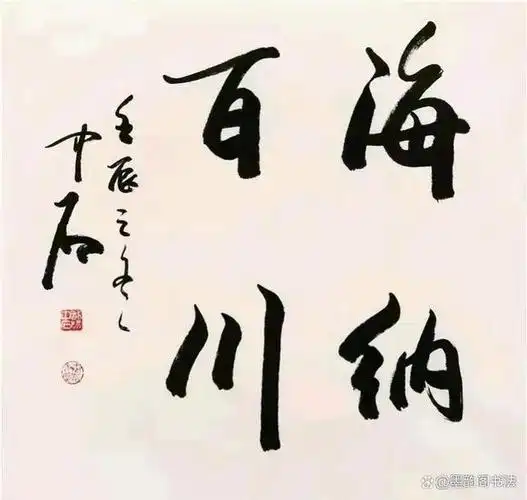 海纳
百川
壬辰之冬
中石
@墨韵阁书法